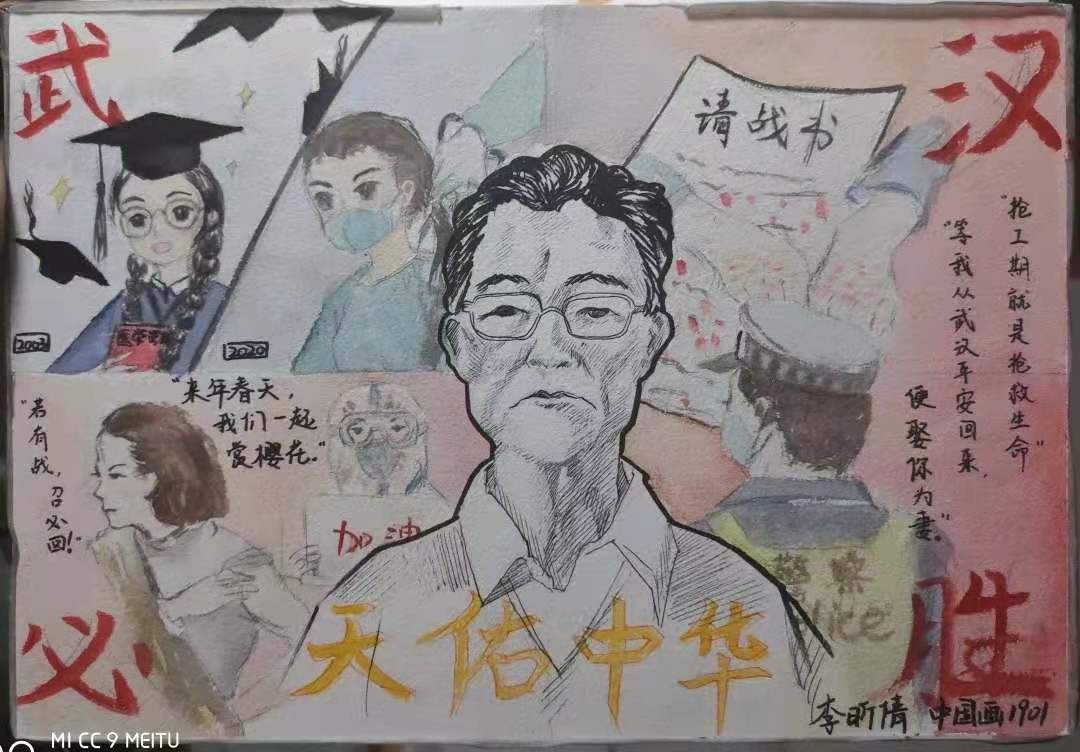 武
汉
请战书
2003
2020
医学
"来年春天,
我们一起
赏樱花."
"若
有
战,
召
必
回!"
"抢工期就是抢救生命"
"等我从武汉平安回来,
便娶你为妻".
加油
警察
lice
必
胜
天佑中华
李昕倩 中国画1901
MI CC 9 MEITU